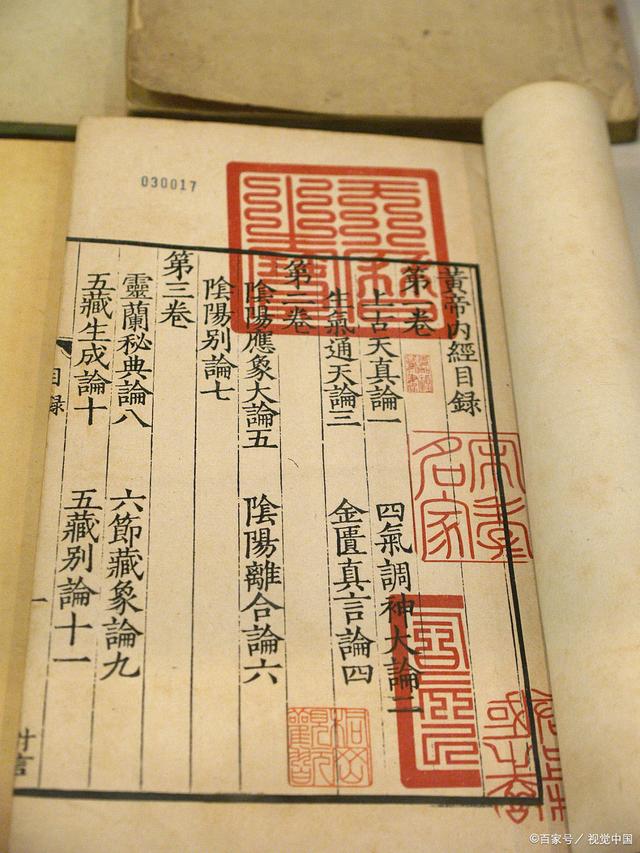 030017
黃帝內經目錄
第一卷
上古天真論一
四氣調神大論二
生氣通天論三
金匱真言論四
第二卷
陰陽應象大論五
陰陽離合論六
陰陽別論七
第三卷
靈蘭秘典論八
六節藏象論九
五藏生成論十
五藏別論十一
目錄
宋季名家
©百家号／视觉中国